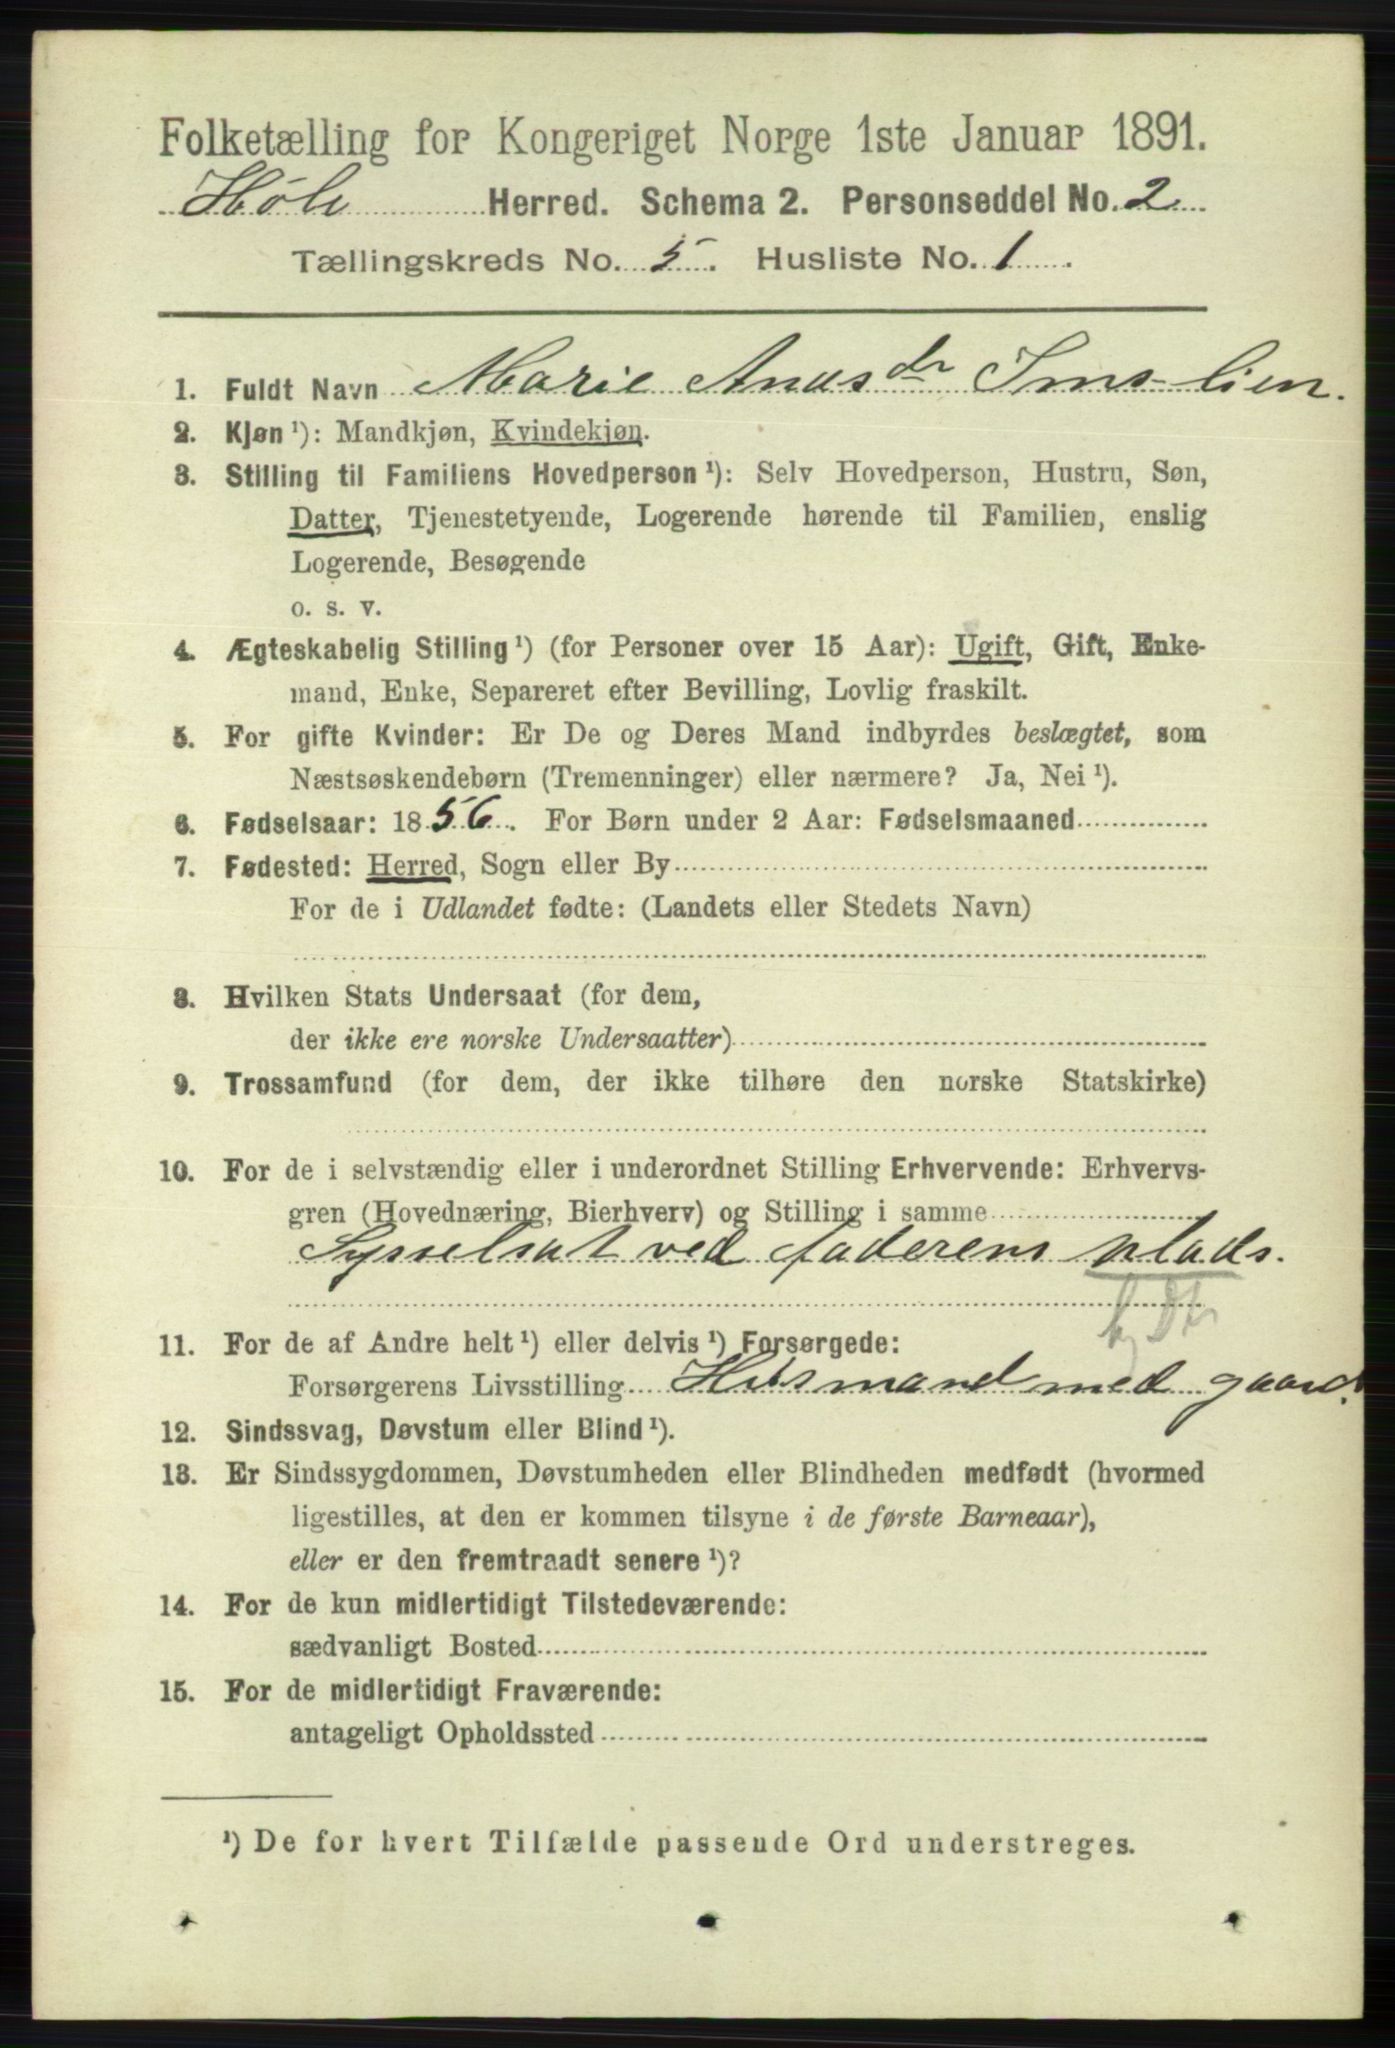 Folketælling for Kongeriget Norge 1ste Januar 1891.
Høle Herred. Schema 2. Personseddel No. 2
Tællingskreds No. 5. Husliste No. 1.
1. Fuldt Navn Marie Anas dr Ims-lien.
2. Kjøn ¹): Mandkjøn, Kvindekjøn.
3. Stilling til Familiens Hovedperson ¹): Selv Hovedperson, Hustru, Søn,
Datter, Tjenestetyende, Logerende hørende til Familien, enslig
Logerende, Besøgende
o. s. v.
4. Ægteskabelig Stilling ¹) (for Personer over 15 Aar): Ugift, Gift, Enke-
mand, Enke, Separeret efter Bevilling, Lovlig fraskilt.
5. For gifte Kvinder: Er De og Deres Mand indbyrdes beslægtet, som
Næstsøskendebørn (Tremenninger) eller nærmere? Ja, Nei ¹).
6. Fødselsaar: 1856. For Børn under 2 Aar: Fødselsmaaned
7. Fødested: Herred, Sogn eller By
For de i Udlandet fødte: (Landets eller Stedets Navn)
8. Hvilken Stats Undersaat (for dem,
der ikke ere norske Undersaatter)
9. Trossamfund (for dem, der ikke tilhøre den norske Statskirke)
10. For de i selvstændig eller i underordnet Stilling Erhvervende: Erhvervs-
gren (Hovednæring, Bierhverv) og Stilling i samme
Sysselsat ved faderens plads.
11. For de af Andre helt ¹) eller delvis ¹) Forsørgede:
Forsørgerens Livsstilling Husmand med gaard.
12. Sindssvag, Døvstum eller Blind ¹).
13. Er Sindssygdommen, Døvstumheden eller Blindheden medfødt (hvormed
ligestilles, at den er kommen tilsyne i de første Barneaar),
eller er den fremtraadt senere ¹)?
14. For de kun midlertidigt Tilstedeværende:
sædvanligt Bosted
15. For de midlertidigt Fraværende:
antageligt Opholdssted
¹) De for hvert Tilfælde passende Ord understreges.